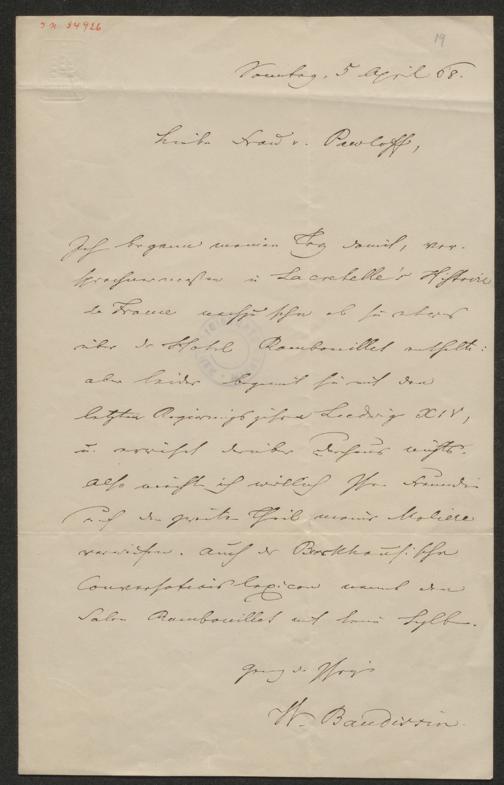 J.N. 34926
19
Sonntag, 5 April 68.
Liebe Frau v. Pawloff,
Ich begann meinen Tag damit, ver-
sprochnermaßen in Lacretelle's Histoire
de France nachzusehn ob sie etwas
über das Hotel Rambouillet enthält:
aber leider beginnt sie mit den
letzten Regierungsjahren Ludwig XIV,
u. erwähnt darüber durchaus nichts.
Also möchte ich wirklich Ihre Freundin
auf den zweiten Theil meines Molière
verweisen. Auch das Brockhaus'sche
Conversationslexicon nennt den
Salon Rambouillet mit keiner Sylbe.
Ganz der Ihrige
W. Baudissin